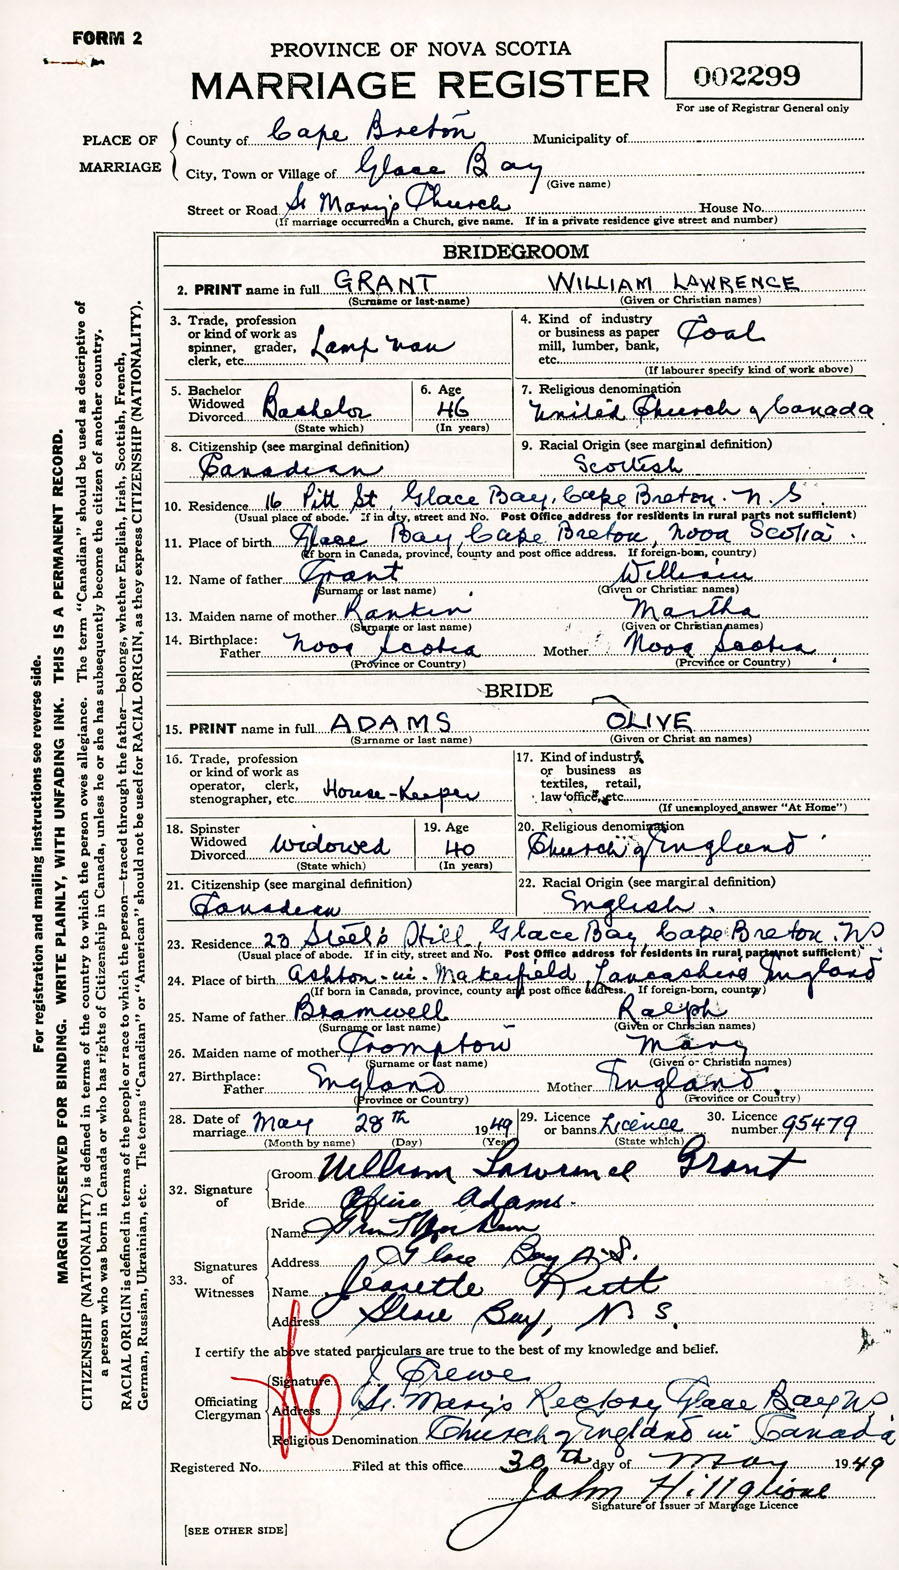 FORM 2
PROVINCE OF NOVA SCOTIA
MARRIAGE REGISTER
002299
For use of Registrar General only
PLACE OF MARRIAGE
County of Cape Breton Municipality of
City, Town or Village of Glace Bay
(Give name)
Street or Road St Mary's Church House No.
(If marriage occurred in a Church, give name. If in a private residence give street and number)
BRIDEGROOM
2. PRINT name in full GRANT WILLIAM LAWRENCE
(Surname or last name) (Given or Christian names)
3. Trade, profession or kind of work as spinner, grader, clerk, etc. Lamp man
4. Kind of industry or business as paper mill, lumber, bank, etc. Coal
(If labourer specify kind of work above)
5. Bachelor Widowed Divorced Bachelor
(State which)
6. Age 46
(In years)
7. Religious denomination
United Church of Canada
8. Citizenship (see marginal definition)
Canadian
9. Racial Origin (see marginal definition)
Scottish
10. Residence 16 Pitt St, Glace Bay, Cape Breton. N.S
(Usual place of abode. If in city, street and No. Post Office address for residents in rural parts not sufficient)
11. Place of birth Glace Bay, Cape Breton, Nova Scotia.
(If born in Canada, province, county and post office address. If foreign-born, country)
12. Name of father Grant William
(Surname or last name) (Given or Christian names)
13. Maiden name of mother Rankin Martha
(Surname or last name) (Given or Christian names)
14. Birthplace:
Father Nova Scotia Mother Nova Scotia
(Province or Country) (Province or Country)
BRIDE
15. PRINT name in full ADAMS OLIVE
(Surname or last name) (Given or Christian names)
16. Trade, profession or kind of work as operator, clerk, stenographer, etc. House-Keeper
17. Kind of industry or business as textiles, retail, law office, etc.
(If unemployed answer "At Home")
18. Spinster Widowed Divorced Widowed
(State which)
19. Age 40
(In years)
20. Religious denomination
Church of England
21. Citizenship (see marginal definition)
Canadian
22. Racial Origin (see marginal definition)
English.
23. Residence 23 Steel's Hill, Glace Bay Cape Breton. NS
(Usual place of abode. If in city, street and No. Post Office address for residents in rural parts not sufficient)
24. Place of birth Ashton-in-Makerfield, Lancashire, England
(If born in Canada, province, county and post office address. If foreign-born, country)
25. Name of father Bramwell Ralph
(Surname or last name) (Given or Christian names)
26. Maiden name of mother Crompton Mary
(Surname or last name) (Given or Christian names)
27. Birthplace:
Father England Mother England
(Province or Country) (Province or Country)
28. Date of marriage May 28th 1949
(Month by name) (Day) (Year)
29. Licence or banns Licence
(State which)
30. Licence number 95479
32. Signature of
Groom William Lawrence Grant
Bride Olive Adams.
33. Signatures of Witnesses
Name
Address Glace Bay N.S.
Name Jeanette
Address Glace Bay, N S.
I certify the above stated particulars are true to the best of my knowledge and belief.
Officiating Clergyman
Signature J. Crewe
Address St. Mary's Rectory Glace Bay NS
Religious Denomination Church of England in Canada
Registered No. Filed at this office 30th day of May 1949
John
Signature of Issuer of Marriage Licence
[SEE OTHER SIDE]
For registration and mailing instructions see reverse side.
MARGIN RESERVED FOR BINDING. WRITE PLAINLY, WITH UNFADING INK. THIS IS A PERMANENT RECORD.
CITIZENSHIP (NATIONALITY) is defined in terms of the country to which the person owes allegiance. The term "Canadian" should be used as descriptive of
a person who was born in Canada or who has rights of Citizenship in Canada, unless he or she has subsequently become the citizen of another country.
RACIAL ORIGIN is defined in terms of the people or race to which the person—traced through the father—belongs, whether English, Irish, Scottish, French,
German, Russian, Ukrainian, etc. The terms "Canadian" or "American" should not be used for RACIAL ORIGIN, as they express CITIZENSHIP (NATIONALITY).